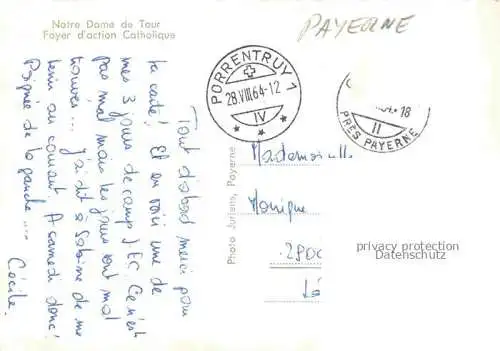 Notre Dame de Tour
Foyer d'action Catholique
PAYERNE
PORRENTRUY 1
28.VIII.64-12
IV
18
II
PRÈS PAYERNE
Tout d'abord merci pour
ta carte! Et en voici une de
mes 3 jours de camp JEC. Ce n'est
pas mal mais les jours sont mal
trouvés... J'ai dit à Sabine de me
tenir au courant. A samedi donc!
Poignée de la gauche...
Cécile.
Photo Juriens, Payerne
Mademoiselle
Monique
2800
privacy protection
Datenschutz